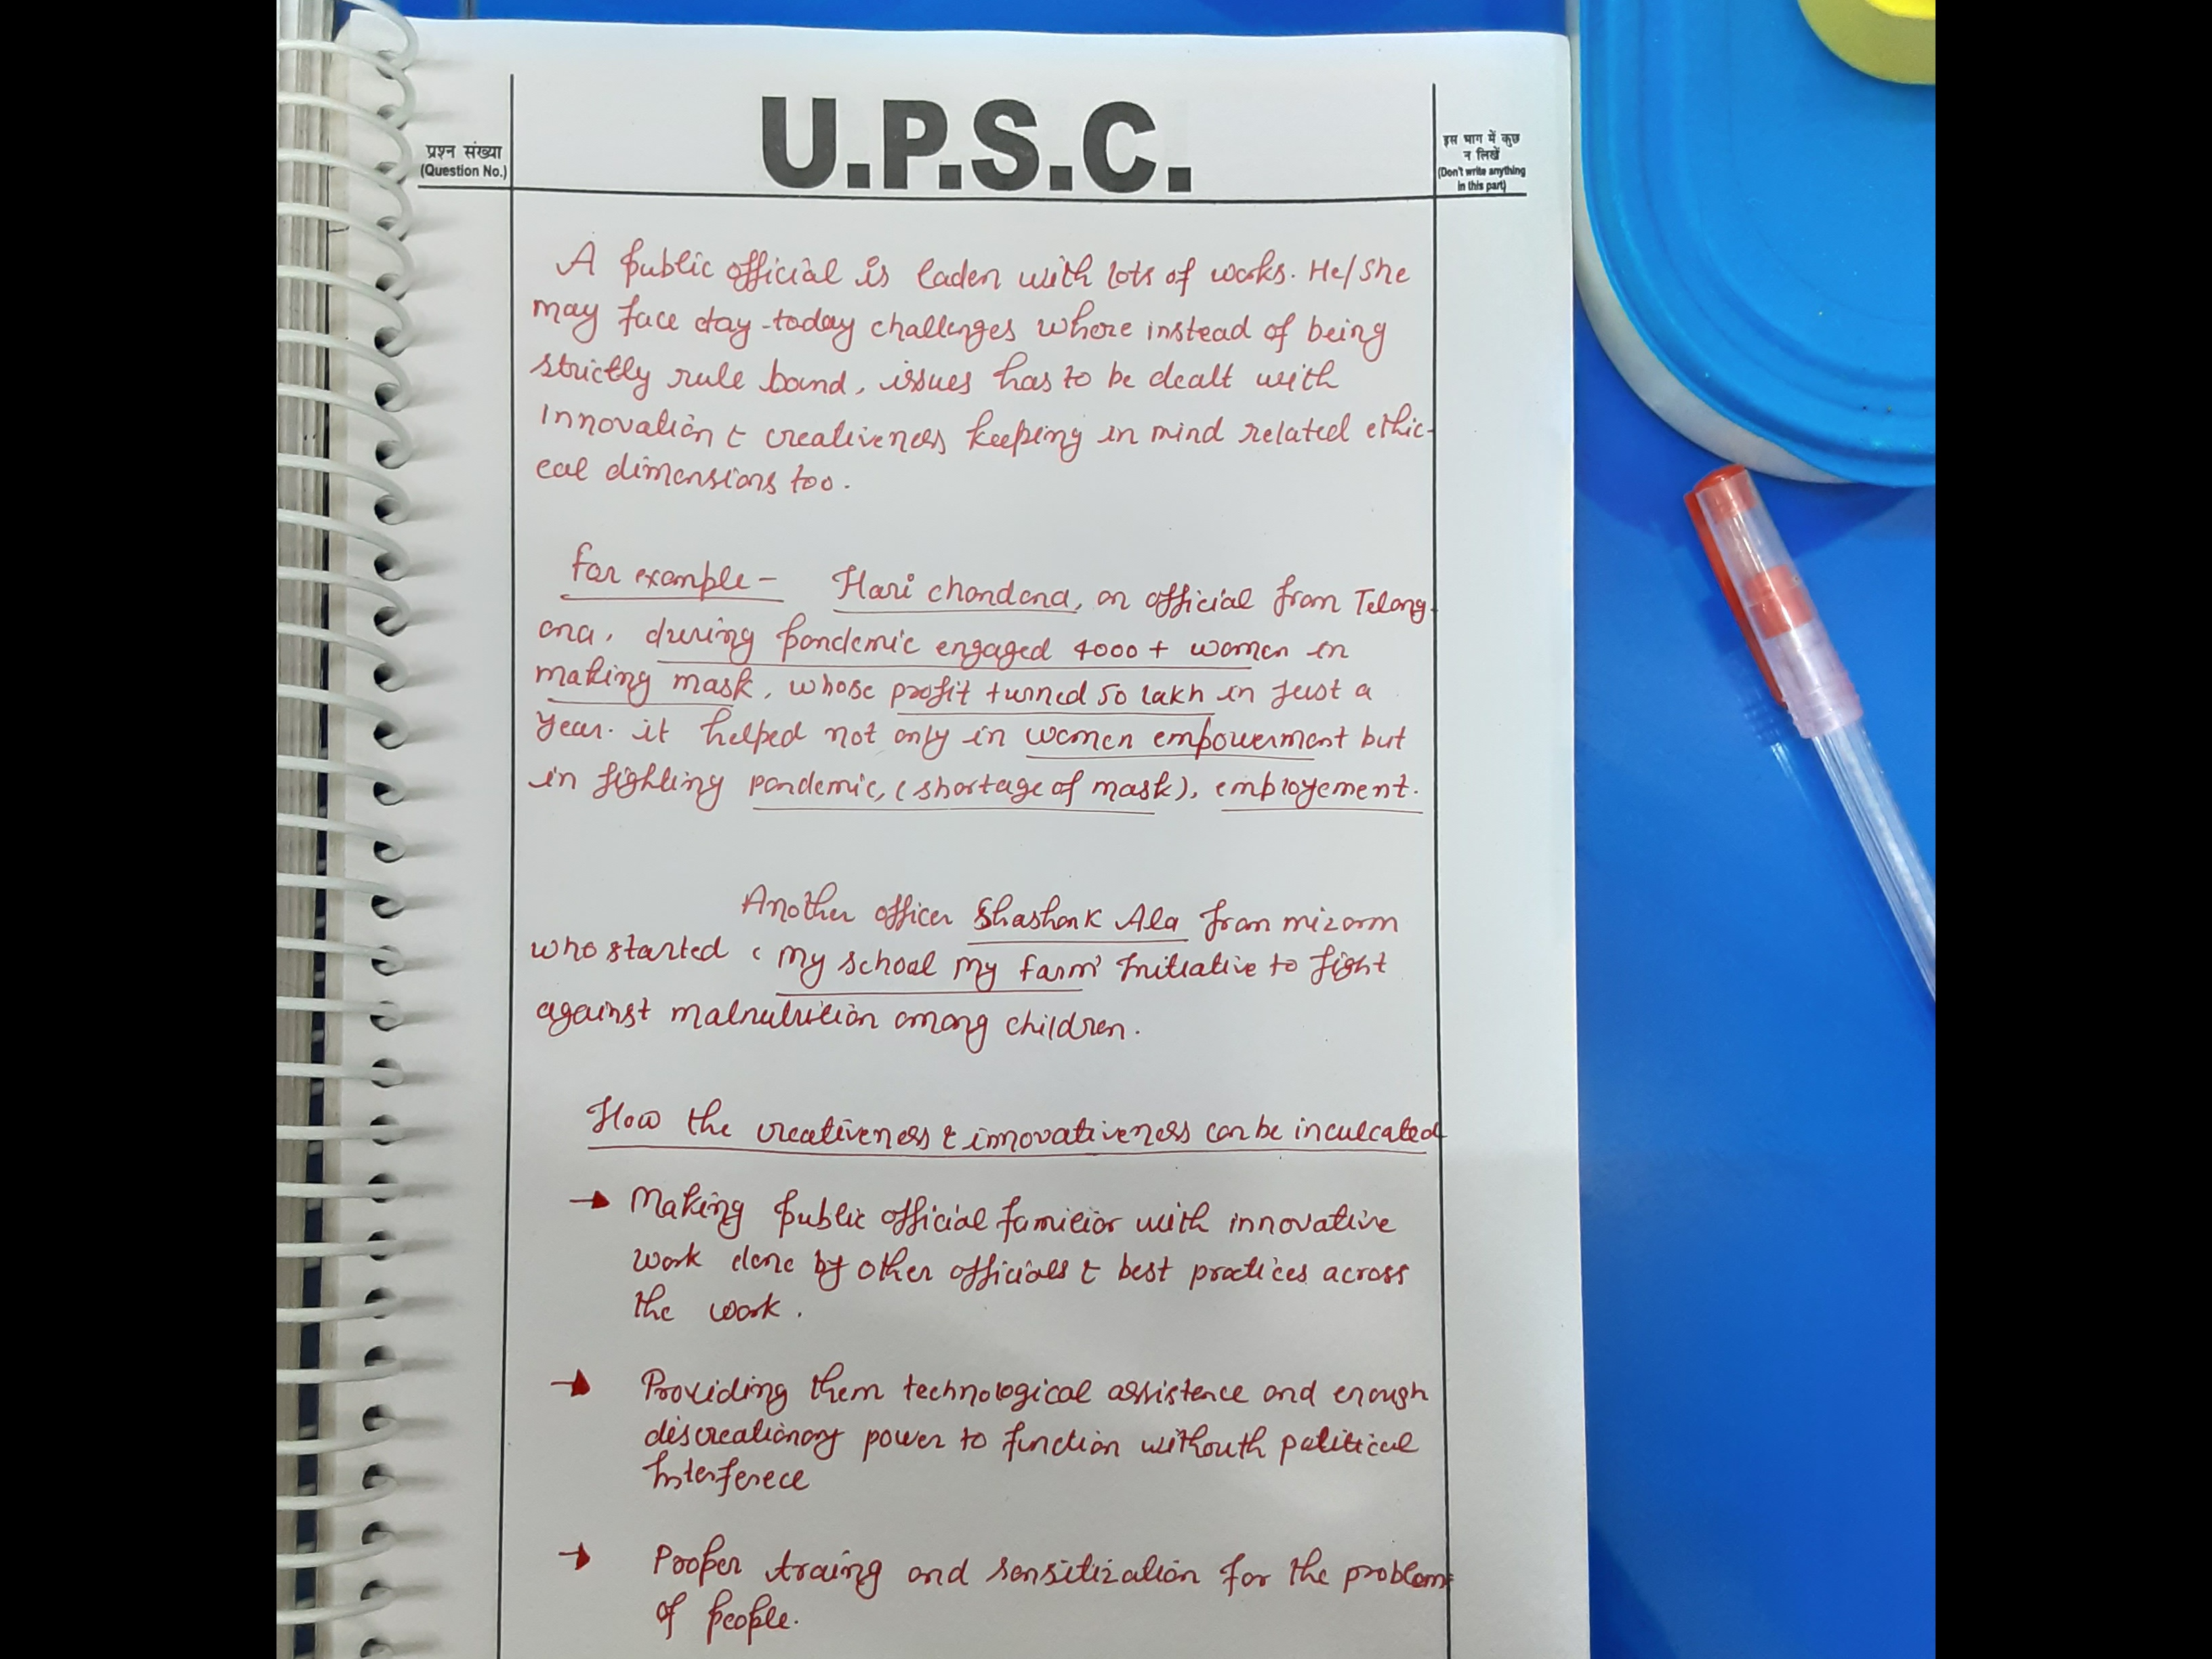 U.P.S.C.
प्रश्न संख्या
(Question No.)
इस भाग में कुछ
न लिखें
(Don't write anything
in this part)
A public official is laden with lots of works. He/She
may face day-today challenges where instead of being
strictly rule bound, issues has to be dealt with
innovation & creativeness keeping in mind related ethic-
cal dimensions too.
for example - Hari chandana, an official from Telang-
ana, during pandemic engaged 4000 + women in
making mask, whose profit turned 50 lakh in just a
year. it helped not only in women empowerment but
in fighting pandemic, (shortage of mask), employement.
Another officer Shashank Ala from mizorm
who started 'my school my farm' Initiative to fight
against malnutrition among children.
How the creativeness & innovativeness can be inculcated
→ Making public official familior with innovative
work done by other officials & best practices across
the work.
→ Providing them technological assistence and enough
discreationary power to function withouth political
Interferece
→ Prooper traing and sensitization for the problems
of people.